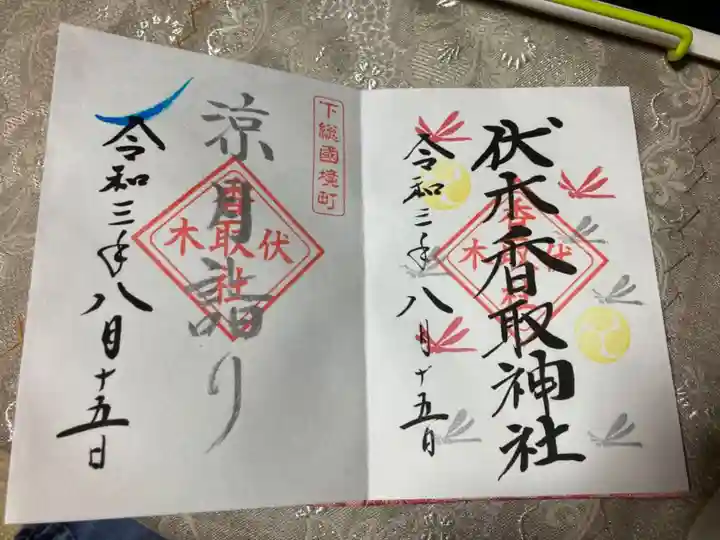 伏木香取神社
伏木
香取社
令和三年八月十五日
下総國境町
涼月詣り
伏木
香取社
令和三年八月十五日